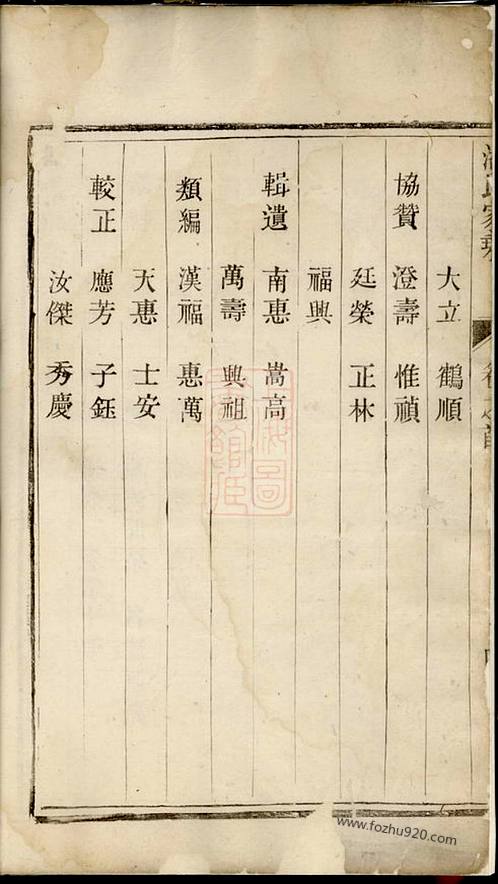 大立 鶴順
協贊 澄壽 惟禎
廷榮 正林
福興
輯遺 南惠 嵩高
萬壽 興祖
類編 漢福 惠萬
天惠 士安
較正 應芳 子鈺
汝傑 秀慶
www.fozhu920.com